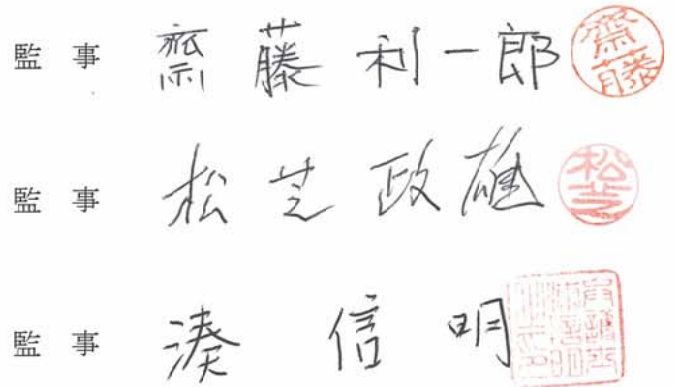 監事 齋藤利一郎 齋藤
監事 松芝政雄 松芝
監事 湊信明